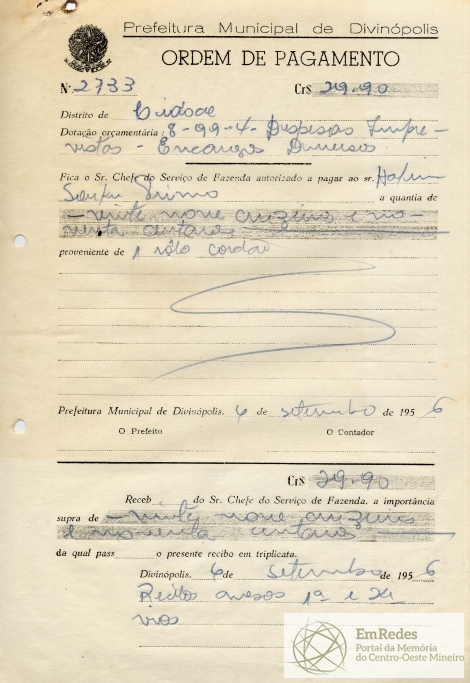 Prefeitura Municipal de Divinópolis
ORDEM DE PAGAMENTO
N.º 2733 Cr$ 29.90
Distrito de Cidade
Dotação orçamentária: 8-99-4- Despesas Impre-
vistas - Encargos Diversos
Fica o Sr. Chefe do Serviço de Fazenda autorizado a pagar ao sr.
a quantia de
- vinte nove cruzeiros e no-
venta centavos
proveniente de 1 rôlo cordão
Prefeitura Municipal de Divinópolis, 6 de setembro de 1956
O Prefeito O Contador
Cr$ 29.90
Receb do Sr. Chefe do Serviço de Fazenda, a importância
supra de - vinte nove cruzeiros
e noventa centavos
da qual pass o presente recibo em triplicata.
Divinópolis, 6 de setembro de 1956
1ª e 2ª
vias
EmRedes
Portal da Memória
do Centro-Oeste Mineiro